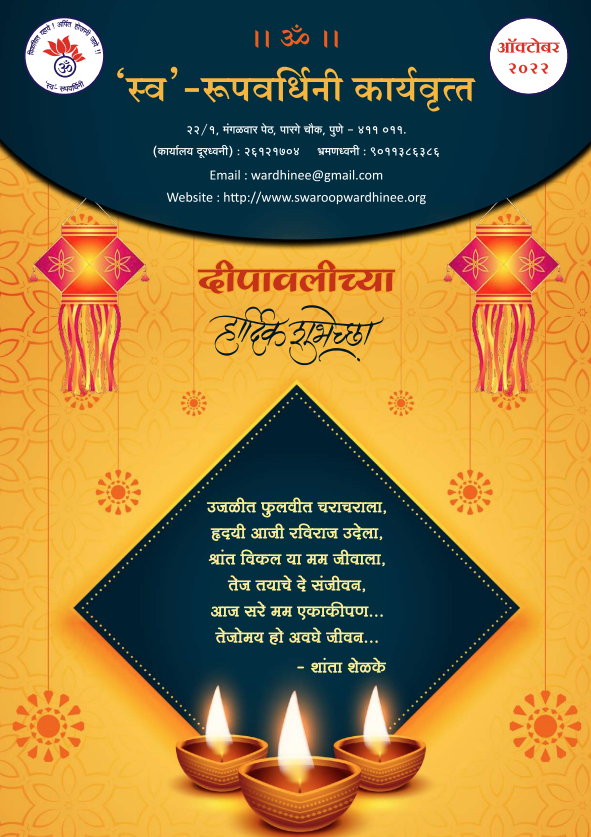 ।। ॐ ।।
ऑक्टोबर
२०२२
विकसित व्हावे ! अर्पित होऊनी जावे !!
ॐ
'स्व'- रूपवर्धिनी
'स्व'-रूपवर्धिनी कार्यवृत्त
२२/१, मंगळवार पेठ, पारगे चौक, पुणे – ४११ ०११.
(कार्यालय दूरध्वनी) : २६१२१७०४ भ्रमणध्वनी : ९०११३८६३८६
Email : wardhinee@gmail.com
Website : http://www.swaroopwardhinee.org
दीपावलीच्या
हार्दिक शुभेच्छा
उजळीत फुलवीत चराचराला,
हृदयी आजी रविराज उदेला,
श्रांत विकल या मम जीवाला,
तेज तयाचे दे संजीवन,
आज सरे मम एकाकीपण...
तेजोमय हो अवघे जीवन...
- शांता शेळके